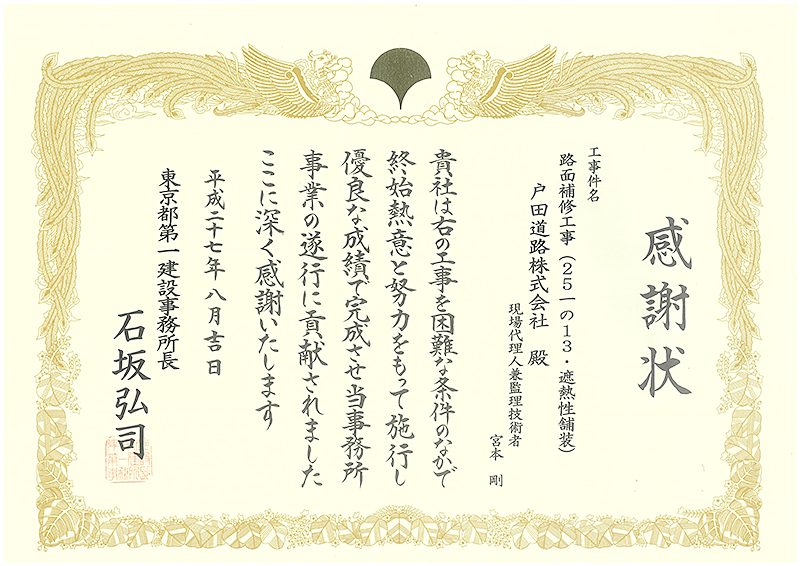 感謝状
工事件名
路面補修工事（25一の13・遮熱性舗装）
戸田道路株式会社 殿
現場代理人兼監理技術者
宮本 剛
貴社は右の工事を困難な条件のなかで
終始熱意と努力をもって施行し
優良な成績で完成させ当事務所
事業の遂行に貢献されました
ここに深く感謝いたします
平成二十七年八月吉日
東京都第一建設事務所長
石坂弘司